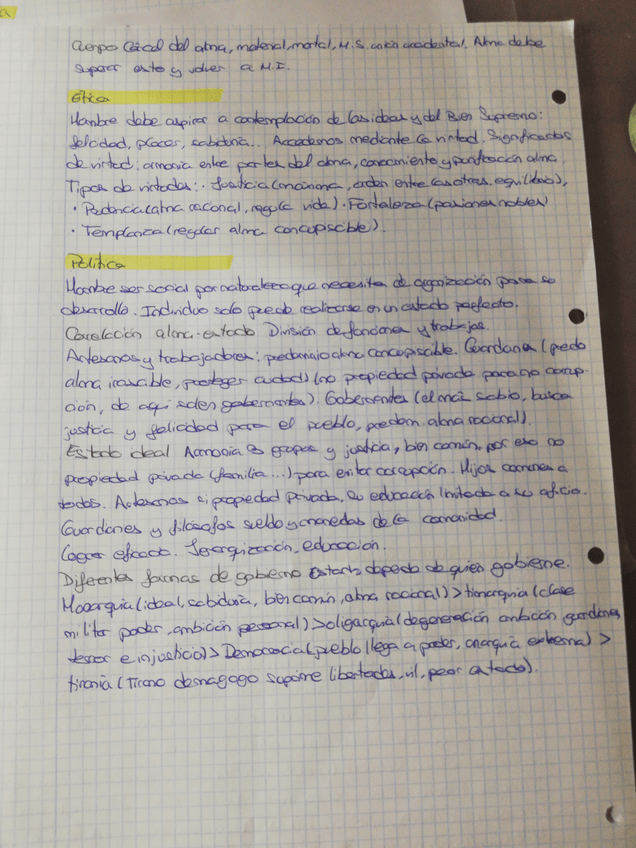 a
Cuerpo Cárcel del alma, material, mortal, M.S. unión accidental. Alma debe
superar esto y volver a M.I.
Ética
Hombre debe aspirar a contemplación de las ideas y del Bien Supremo:
felicidad, placer, sabiduría... Accedemos mediante la virtud. Significados
de virtud: armonía entre partes del alma, conocimiento y purificación alma.
Tipos de virtudes: · Justicia (máxima, orden entre las otras, equilibrio),
· Prudencia (alma racional, regula vida) · Fortaleza (pasiones nobles)
· Templanza (regular alma concupiscible).
Política
Hombre ser social por naturaleza que necesita de organización para su
desarrollo. Individuo solo puede realizarse en un estado perfecto.
Correlación alma-estado División de funciones y trabajos.
Artesanos y trabajadores: predominio alma concupiscible. Guardianes (predo
alma irascible, proteger ciudad) (no propiedad privada para no corrup-
ción, de aquí salen gobernantes). Gobernantes (el más sabio, busca
justicia y felicidad para el pueblo, predom. alma racional).
Estado ideal Armonía grupos y justicia, bien común, por eso no
propiedad privada (familia...) para evitar corrupción. Hijos comunes a
todos. Artesanos si propiedad privada, su educación limitada a su oficio.
Guardianes y filósofos sueldo y monedas de la comunidad.
Lograr eficacia. Jerarquización, educación.
Diferentes formas de gobierno Estado depende de quien gobierne.
Monarquía (ideal, sabiduría, bien común, alma racional) > timarquía (clase
militar poder, ambición personal) > oligarquía (degeneración ambición guardianes,
terror e injusticia) > Democracia (pueblo llega a poder, anarquía extrema) >
tiranía (Tirano demagogo suprime libertades, vil, peor estado).